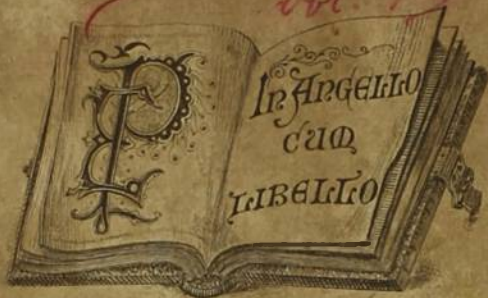 IN ANGELLO
CUM
LIBELLO